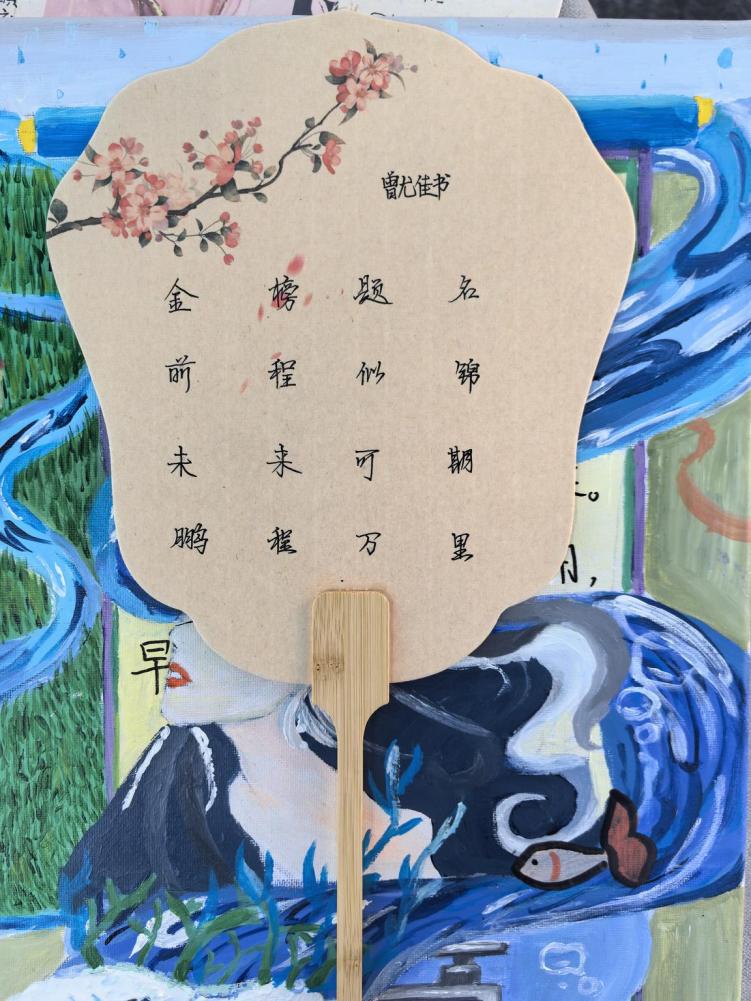 曾尤佳书
金榜题名
前程似锦
未来可期
鹏程万里
。
月,
早